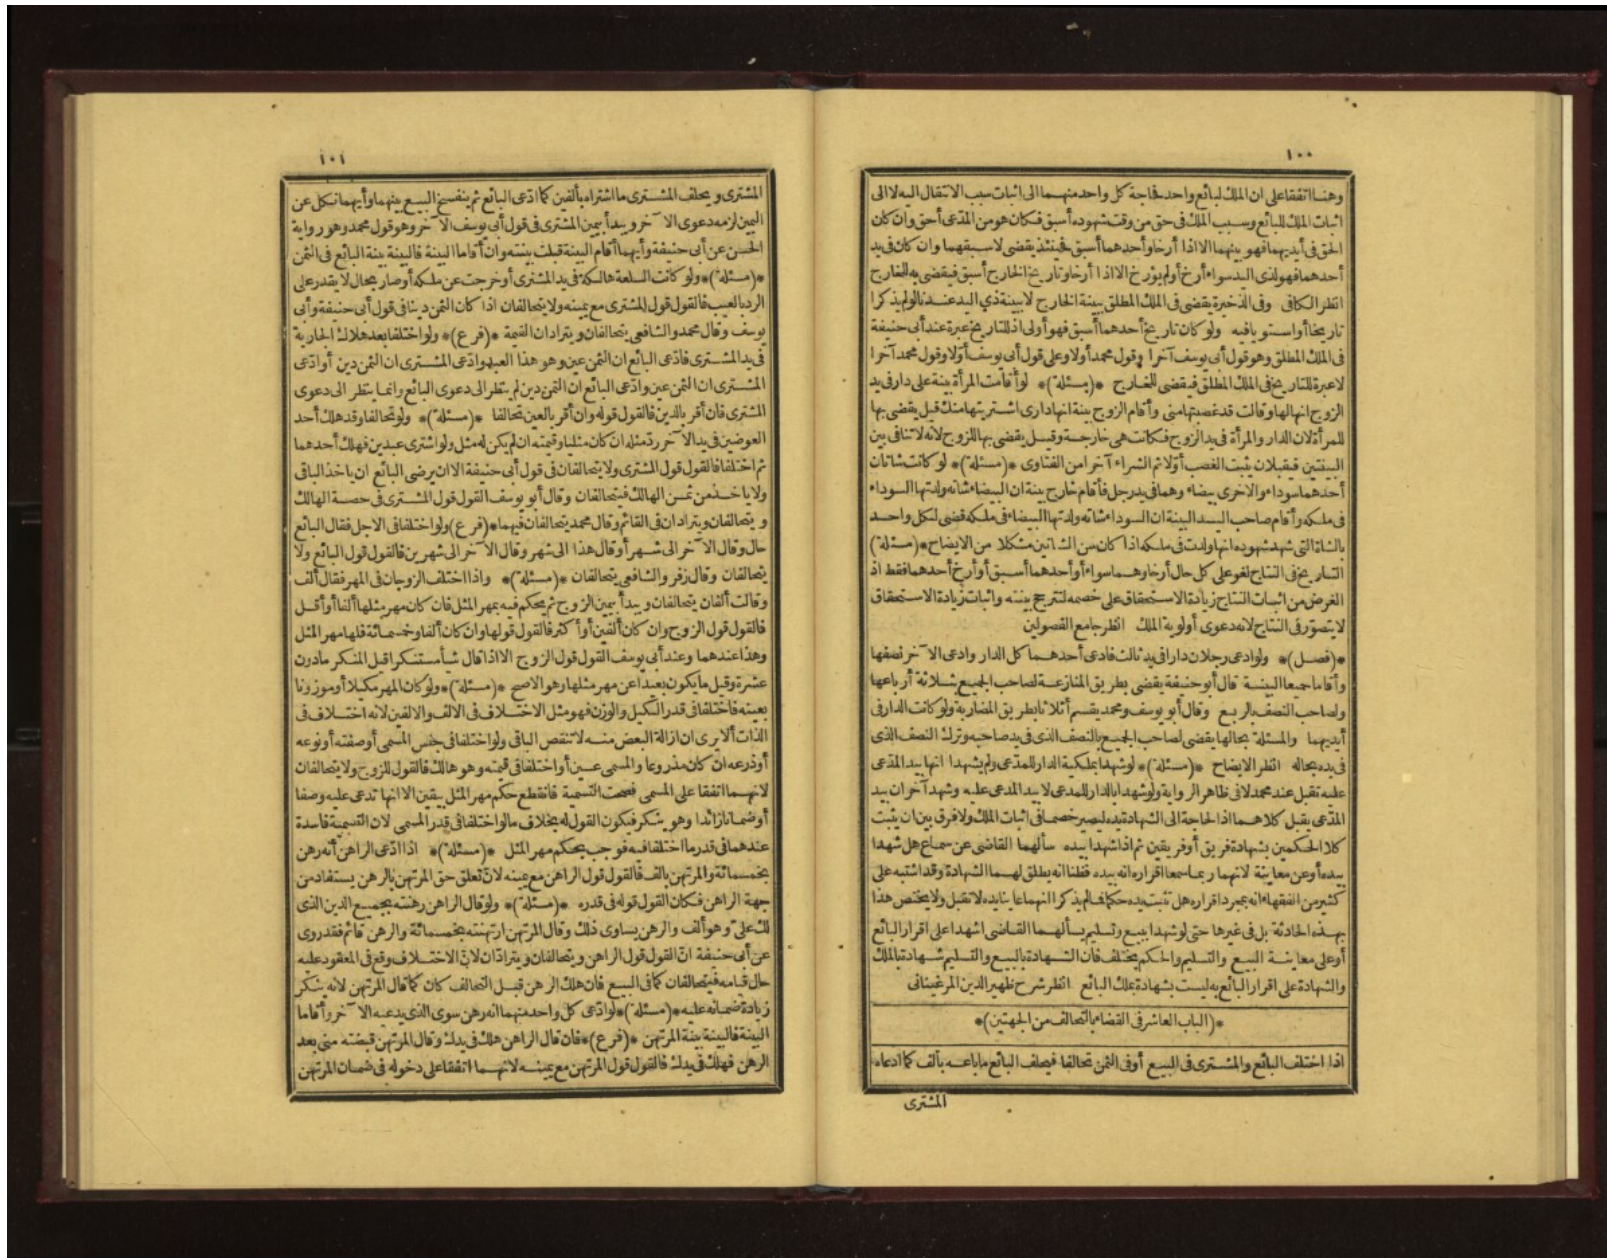 ١٠٠
وهنا اتفقا على ان الملك لبائع واحد فحاجة كل واحد منهما الى اثبات سبب الانتقال اليه لا الى
اثبات الملك للبائع وسبب الملك فى حق من وقت شهوده أسبق فكان هو من المدعى أحق وان كان
الحق فى أيديهما فهو بينهما الا اذا أرخا وأحدهما أسبق فحينئذ يقضى لاسبقهما وان كان فى يد
أحدهما فهو لذى اليد سواء أرخ أو لم يؤرخ الا اذا أرخا وتاريخ الخارج أسبق فيقضى به للخارج
انظر الكافى وفى الذخيرة يقضى فى الملك المطلق ببينة الخارج لا ببينة ذي اليد عندنا لو لم يذكرا
تاريخا أو استويا فيه ولو كان تاريخ أحدهما أسبق فهو أولى اذ للتاريخ عبرة عند أبى حنيفة
فى الملك المطلق وهو قول أبى يوسف آخرا وقول محمد أولا وعلى قول أبى يوسف أولا وقول محمد آخرا
لا عبرة للتاريخ فى الملك المطلق فيقضى للخارج *(مسئلة)* لو أقامت المرأة بينة على دار فى يد
الزوج انها لها وقالت قد غصبتها منى وأقام الزوج بينة انها دارى اشتريتها منك قيل يقضى بها
للمرأة لان الدار والمرأة فى يد الزوج فكانت هى خارجة وقيل يقضى بها للزوج لانه لا تنافى بين
البينتين فيقبلان يثبت الغصب أولا ثم الشراء آخرا من الفتاوى *(مسئلة)* لو كانت شاتان
أحدهما سوداء والاخرى بيضاء وهما فى يد رجل فأقام خارج بينة ان البيضاء شاته ولدتها السوداء
فى ملكه وأقام صاحب اليد البينة ان السوداء شاته ولدتها البيضاء فى ملكه قضى لكل واحد
بالشاة التى شهد شهوده انها ولدت فى ملكه اذا كان سن الشاتين مشكلا من الايضاح *(مسئلة)
التاريخ فى النتاج لغو على كل حال أرخا وهما سواء أو أحدهما أسبق أو أرخ أحدهما فقط اذ
الغرض من اثبات النتاج زيادة الاستحقاق على خصمه لتترجح بينته واثبات زيادة الاستحقاق
لا يتصور فى النتاج لانه دعوى أولوية الملك انظر جامع الفصولين
*(فصل)* ولو ادعى رجلان دارا فى يد ثالث فادعى أحدهما كل الدار وادعى الآخر نصفها
وأقاما جميعا البينة قال أبو حنيفة يقضى بطريق المنازعة لصاحب الجميع بثلاثة أرباعها
ولصاحب النصف بالربع وقال أبو يوسف ومحمد يقسم أثلاثا بطريق المضاربة ولو كانت الدار فى
أيديهما والمسئلة بحالها يقضى لصاحب الجميع بالنصف الذى فى يد صاحبه وترك النصف الذى
فى يده بحاله انظر الايضاح *(مسئلة)* لو شهدا بملكية الدار للمدعى ولم يشهدا انها بيد المدعى
عليه تقبل عند محمد لا فى ظاهر الرواية ولو شهدا بالدار للمدعى لا بيد المدعى عليه وشهد آخران بيد
المدعى يقبل كلاهما اذ الحاجة الى الشهادة بيده ليصير خصما فى اثبات الملك ولا فرق بين ان يثبت
كلا الحكمين بشهادة فريق أو فريقين ثم اذا شهدا بيده سألهما القاضى عن سماع هل شهدا
بيده أو عن معاينة لانهما ربما سمعا اقراره انه بيده فظنا انه يطلق لهما الشهادة وقد اشتبه على
كثير من الفقهاء انه بمجرد اقراره هل تثبت يده حكما فما لم يذكرا انهما عاينا يده لا تقبل ولا يختص هذا
بهذه الحادثة بل فى غيرها حتى لو شهدا ببيع وتسليم يسألهما القاضى اشهدا على اقرار البائع
أو على معاينة البيع والتسليم والحكم يختلف فان الشهادة بالبيع والتسليم شهادة بالملك
والشهادة على اقرار البائع به ليست بشهادة بملك البائع انظر شرح ظهير الدين المرغينانى
*(الباب العاشر فى القضاء بالتحالف من الجهتين)*
اذا اختلف البائع والمشترى فى المبيع أو فى الثمن تحالفا فيحلف البائع ما باعه بألف كما ادعاه
المشترى
١٠١
المشترى ويحلف المشترى ما اشتراه بألفين كما ادعى البائع ثم ينفسخ البيع بينهما وأيهما نكل عن
اليمين لزمه دعوى الآخر ويبدأ بيمين المشترى فى قول أبى يوسف الآخر وهو قول محمد وهو رواية
الحسن عن أبى حنيفة وأيهما أقام البينة قبلت بينته وان أقاما البينة فالبينة بينة البائع فى الثمن
*(مسئلة)* ولو كانت السلعة هالكة فى يد المشترى أو خرجت عن ملكه أو صار بحال لا يقدر على
الرد بالعيب فالقول قول المشترى مع يمينه ولا يتحالفان اذا كان الثمن دينا فى قول أبى حنيفة وأبى
يوسف وقال محمد والشافعى يتحالفان ويترادان القيمة *(فرع)* ولو اختلفا بعد هلاك الجارية
فى يد المشترى فادعى البائع ان الثمن عين وهو هذا العبد وادعى المشترى ان الثمن دين أو ادعى
المشترى ان الثمن عين وادعى البائع ان الثمن دين لم ينظر الى دعوى البائع وانما ينظر الى دعوى
المشترى فان أقر بالدين فالقول قوله وان أقر بالعين تحالفا *(مسئلة)* ولو تحالفا وقد هلك أحد
العوضين فى يد الآخر رد مثله ان كان مثليا وقيمته ان لم يكن له مثل ولو اشترى عبدين فهلك أحدهما
ثم اختلفا فالقول قول المشترى ولا يتحالفان فى قول أبى حنيفة الا ان يرضى البائع ان يأخذ الباقى
ولا يأخذ من ثمن الهالك فيتحالفان وقال أبو يوسف القول قول المشترى فى حصة الهالك
ويتحالفان ويترادان فى القائم وقال محمد يتحالفان فيهما *(فرع) ولو اختلفا فى الاجل فقال البائع
حال وقال الآخر الى شهر أو قال هذا الى شهر وقال الآخر الى شهرين فالقول قول البائع ولا
يتحالفان وقال زفر والشافعى يتحالفان *(مسئلة)* واذا اختلف الزوجان فى المهر فقال ألف
وقالت ألفان يتحالفان ويبدأ بيمين الزوج ثم يحكم فيه بمهر المثل فان كان مهر مثلها ألفا أو أقل
فالقول قول الزوج وان كان ألفين أو أكثر فالقول قولها وان كان ألفا وخمسمائة فلها مهر المثل
وهذا عندهما وعند أبى يوسف القول قول الزوج الا اذا قال شيأ مستنكرا قيل المنكر ما دون
عشرة وقيل ما يكون بعيدا عن مهر مثلها وهو الاصح *(مسئلة)* ولو كان المهر مكيلا أو موزونا
بعينه فاختلفا فى قدر الكيل والوزن فهو مثل الاختلاف فى الالف والالفين لانه اختلاف فى
الذات ألا يرى ان ازالة البعض منه لا تنقص الباقى ولو اختلفا فى جنس المسمى أو صفته أو نوعه
أو ذرعه ان كان مذروعا والمسمى عين أو اختلفا فى قيمته وهو هالك فالقول للزوج ولا يتحالفان
لانهما اتفقا على المسمى فصحت التسمية فانقطع حكم مهر المثل بيقين الا انها تدعى عليه وصفا
أو ضمانا زائدا وهو ينكر فيكون القول له بخلاف ما لو اختلفا فى قدر المسمى لان التسمية فاسدة
عندهما فى قدر ما اختلفا فيه فوجب يحكم مهر المثل *(مسئلة)* اذا ادعى الراهن أنه رهن
بخمسمائة والمرتهن بالف فالقول قول الراهن مع يمينه لان تعلق حق المرتهن بالرهن يستفاد من
جهة الراهن فكان القول قوله فى قدره *(مسئلة)* ولو قال الراهن رهنته بجميع الدين الذى
لك على وهو ألف والرهن يساوى ذلك وقال المرتهن ارتهنته بخمسمائة والرهن قائم فقد روى
عن أبى حنيفة ان القول قول الراهن ويتحالفان ويترادان لان الاختلاف وقع فى المعقود عليه
حال قيامه فيتحالفان كما فى البيع فان هلك الرهن قبل التحالف كان كما قال المرتهن لانه ينكر
زيادة ضمانه عليه *(مسئلة)* لو ادعى كل واحد منهما انه رهن سوى الذى يدعيه الآخر وأقاما
البينة فالبينة بينة المرتهن *(فرع)* فان قال الراهن هلك فى يدك وقال المرتهن قبضته منى بعد
الرهن فهلك فى يدك فالقول قول المرتهن مع يمينه لانهما اتفقا على دخوله فى ضمان المرتهن